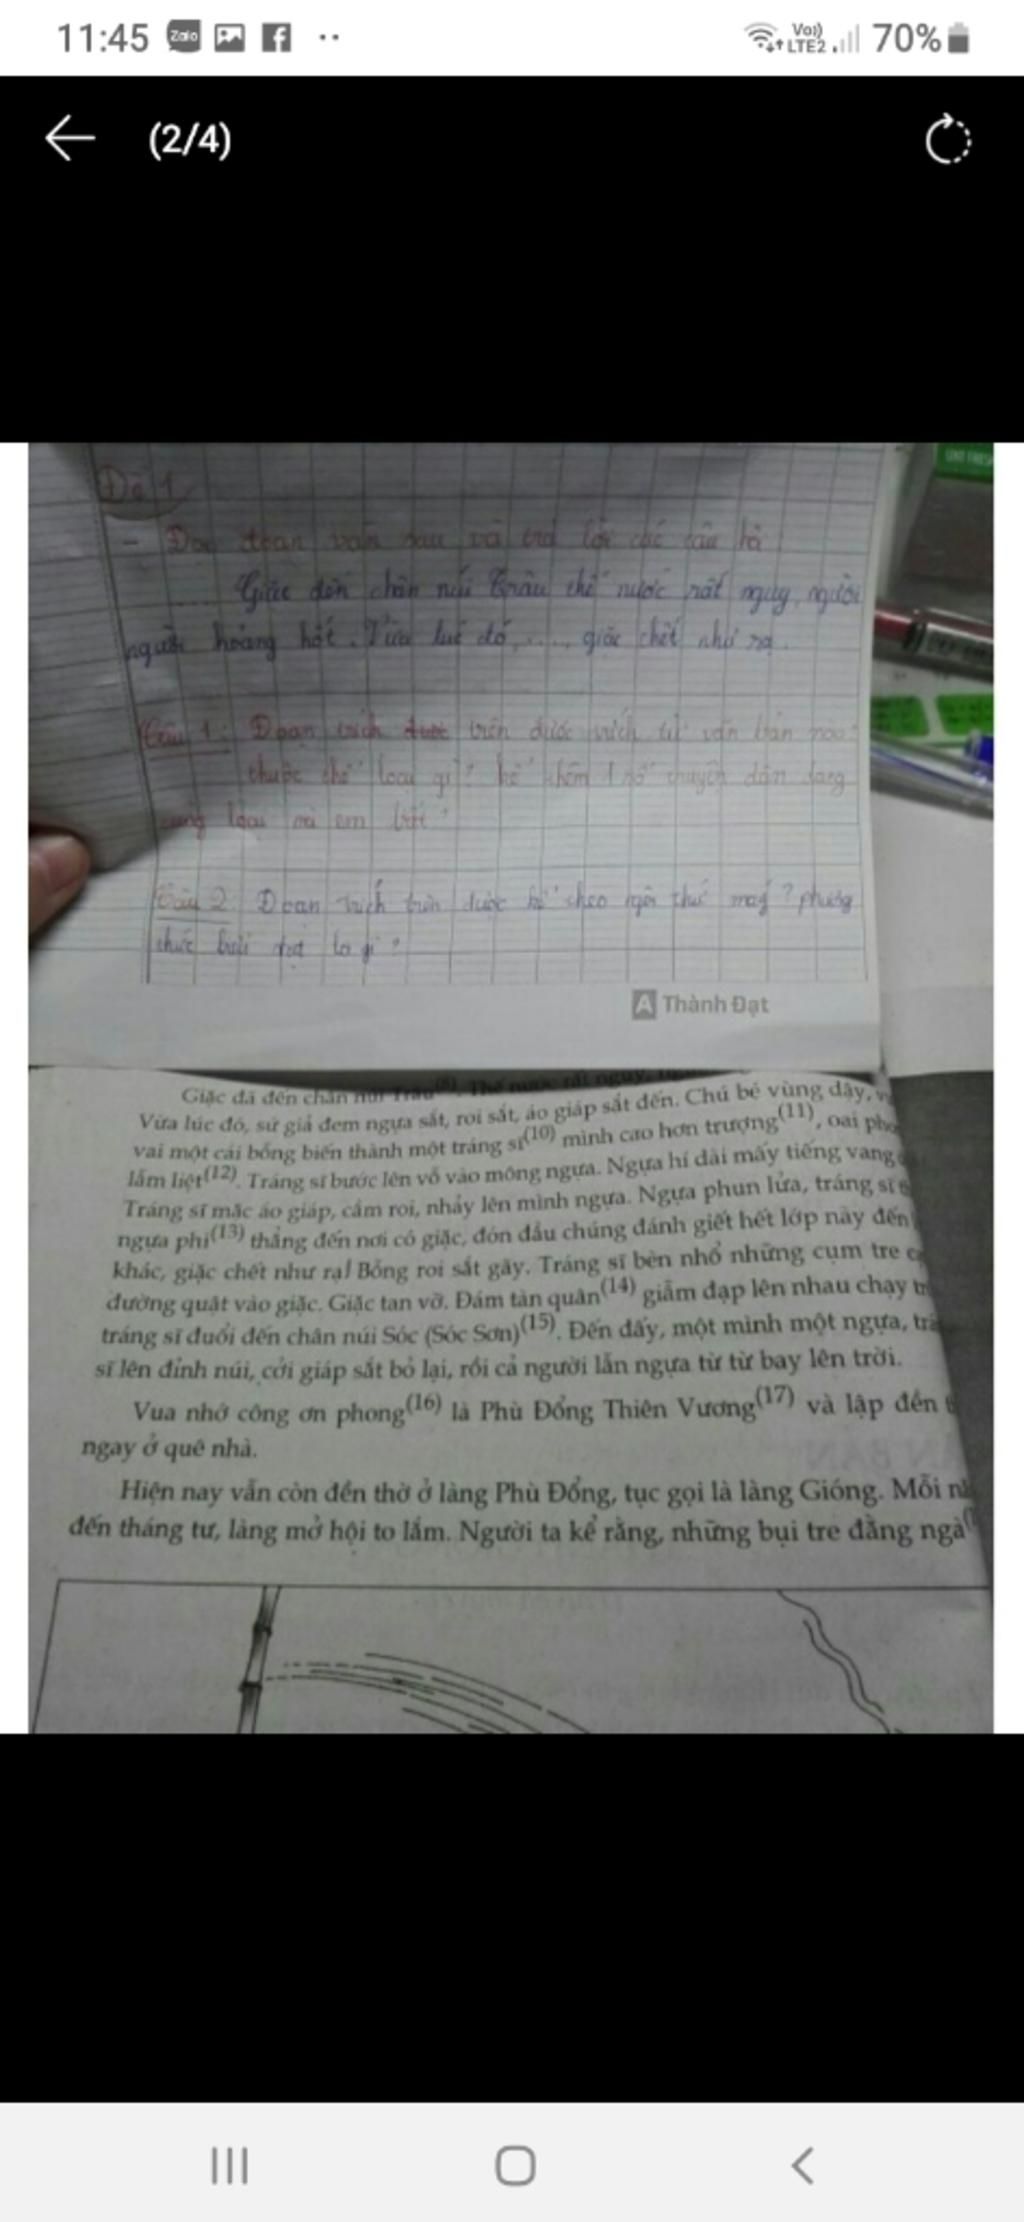 11:45 Zalo
Vo))
LTE2
70%
(2/4)
Đề 1
- Đọc đoạn văn sau và trả lời các câu hỏ
Giặc đến chân núi Trâu thế nước rất nguy, người
người hoảng hốt. Vừa lúc đó, ...., giặc chết như rạ.
Câu 1: Đoạn trích được trên được trích từ văn bản nào
thuộc thể loại gì? kể thêm 1 số truyện dân gang
cùng loại mà em biết?
Câu 2 Đoạn trích trên được kể theo ngôi thứ mấy? phương
thức biểu đạt là gì?
A Thành Đạt
Giặc đã đến chân núi Trâu(8). Thế nước rất nguy,
Vừa lúc đó, sứ giả đem ngựa sắt, roi sắt, áo giáp sắt đến. Chú bé vùng dậy,
vai một cái bỗng biến thành một tráng sĩ(10) mình cao hơn trượng(11), oai pho
lẫm liệt(12). Tráng sĩ bước lên vỗ vào mông ngựa. Ngựa hí dài mấy tiếng vang
Tráng sĩ mặc áo giáp, cầm roi, nhảy lên mình ngựa. Ngựa phun lửa, tráng sĩ
ngựa phi(13) thẳng đến nơi có giặc, đón đầu chúng đánh giết hết lớp này đến
khác, giặc chết như rạ/ Bỗng roi sắt gãy. Tráng sĩ bèn nhổ những cụm tre
đường quật vào giặc. Giặc tan vỡ. Đám tàn quân(14) giẫm đạp lên nhau chạy
tráng sĩ đuổi đến chân núi Sóc (Sóc Sơn)(15). Đến đấy, một mình một ngựa, trá
sĩ lên đỉnh núi, cởi giáp sắt bỏ lại, rồi cả người lẫn ngựa từ từ bay lên trời.
Vua nhớ công ơn phong(16) là Phù Đổng Thiên Vương(17) và lập đền
ngay ở quê nhà.
Hiện nay vẫn còn đền thờ ở làng Phù Đổng, tục gọi là làng Gióng. Mỗi
đến tháng tư, làng mở hội to lắm. Người ta kể rằng, những bụi tre đằng ngà